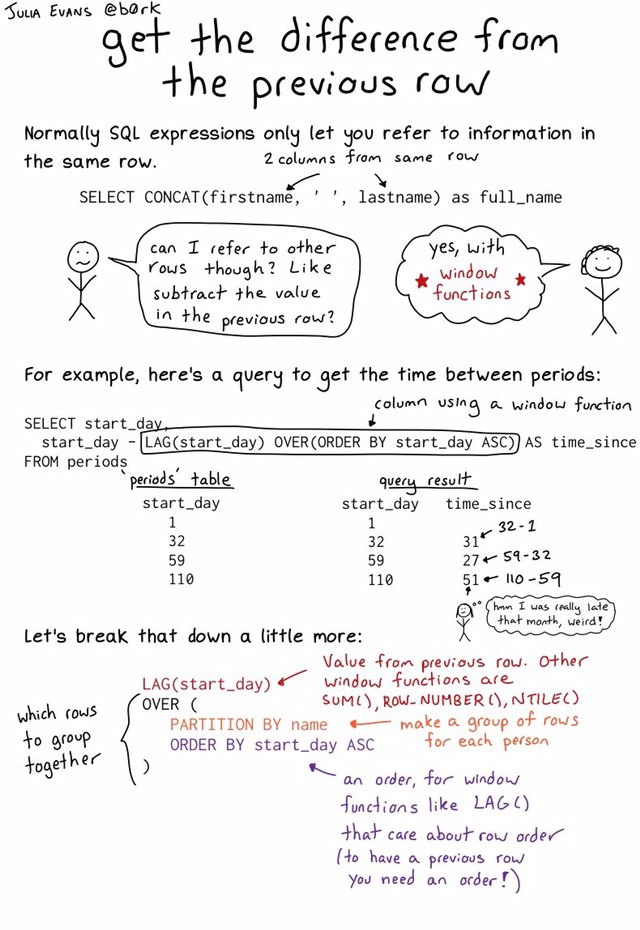 JULIA EVANS @b0rk
get the difference from
the previous row
Normally SQL expressions only let you refer to information in
the same row.
2 columns from same row
SELECT CONCAT(firstname, ' ', lastname) as full_name
can I refer to other
rows though? Like
subtract the value
in the previous row?
yes, with
★ window ★
functions
For example, here's a query to get the time between periods:
column using a window function
SELECT start_day,
start_day - LAG(start_day) OVER(ORDER BY start_day ASC) AS time_since
FROM periods
'periods' table
query result
start_day
start_day time_since
1
1
32-1
32
32 31
59
59 27 59-32
110
110 51 110-59
hmm I was really late
that month, weird!
Let's break that down a little more:
Value from previous row. Other
window functions are
SUM(), ROW_NUMBER(), NTILE()
LAG(start_day)
OVER (
which rows
to group
together
PARTITION BY name
make a group of rows
for each person
ORDER BY start_day ASC
)
an order, for window
functions like LAG()
that care about row order
(to have a previous row
you need an order!)